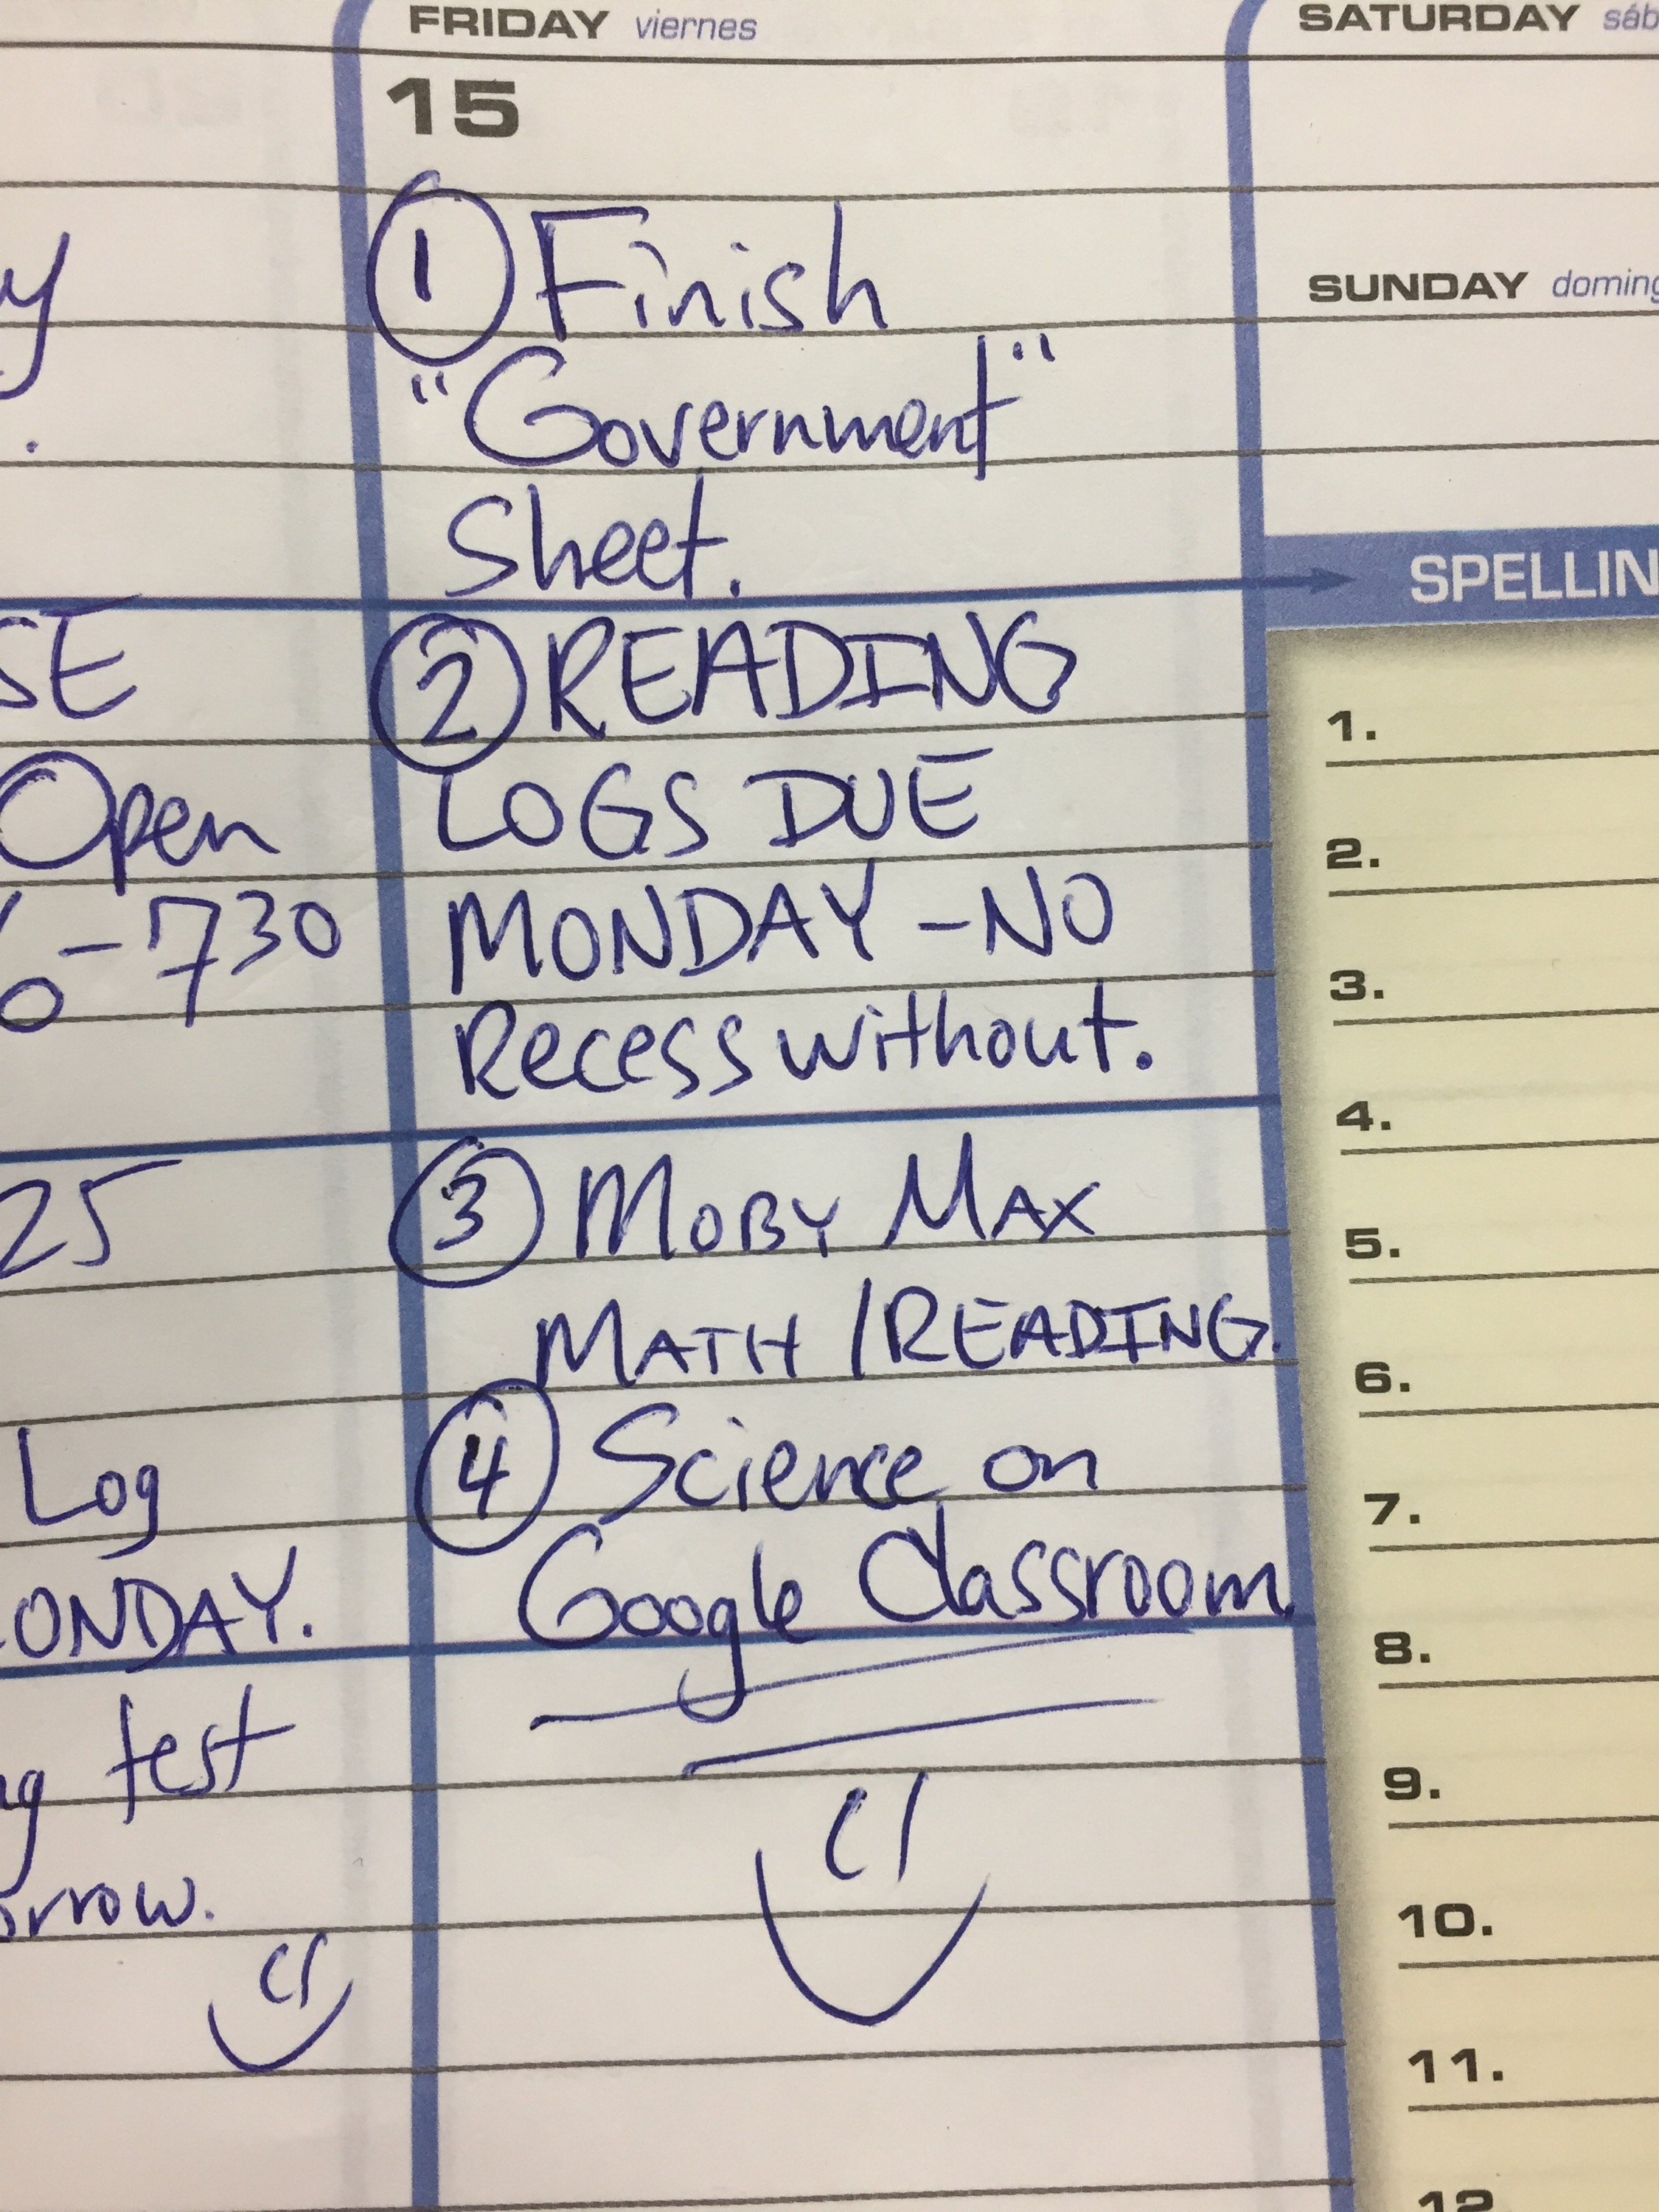 FRIDAY viernes
15
① Finish
"Government"
Sheet.
② READING
LOGS DUE
MONDAY - NO
Recess without.
③ MOBY MAX
MATH / READING.
④ Science on
Google Classroom
y
.
SE
Open
6-7³⁰
25
Log
ONDAY.
ng test
orrow.
SATURDAY sáb
SUNDAY doming
SPELLIN
1.
2.
3.
4.
5.
6.
7.
8.
9.
10.
11.
12